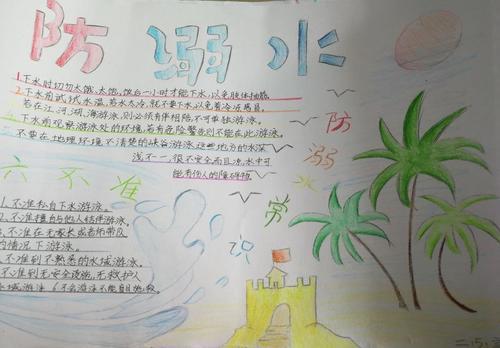 防溺水
1.下水时切勿太饿、太饱,饭后一小时才能下水,以免肢体抽筋
2.下水前试试水温,若水太冷,就不要下水,以免着冷冻感冒。
若在江、河、湖、海游泳,则必须有伴相陪,不可单独游泳。
下水前观察游泳处的环境,若有危险警告则不能在此游泳。
不要在地理环境不清楚的峡谷游泳,这些地方的水深
浅不一,很不安全而且凉,水中可
能有伤人的障碍物
防溺水常识
六不准
1.不准私自下水游泳。
2.不准擅自与他人结伴游泳。
不准在无家长或老师带队
的情况下游泳。
不准到不熟悉的水域游泳。
不准到无安全设施,无救护人
水域游泳 6不会游泳不能自己施救
二.15.